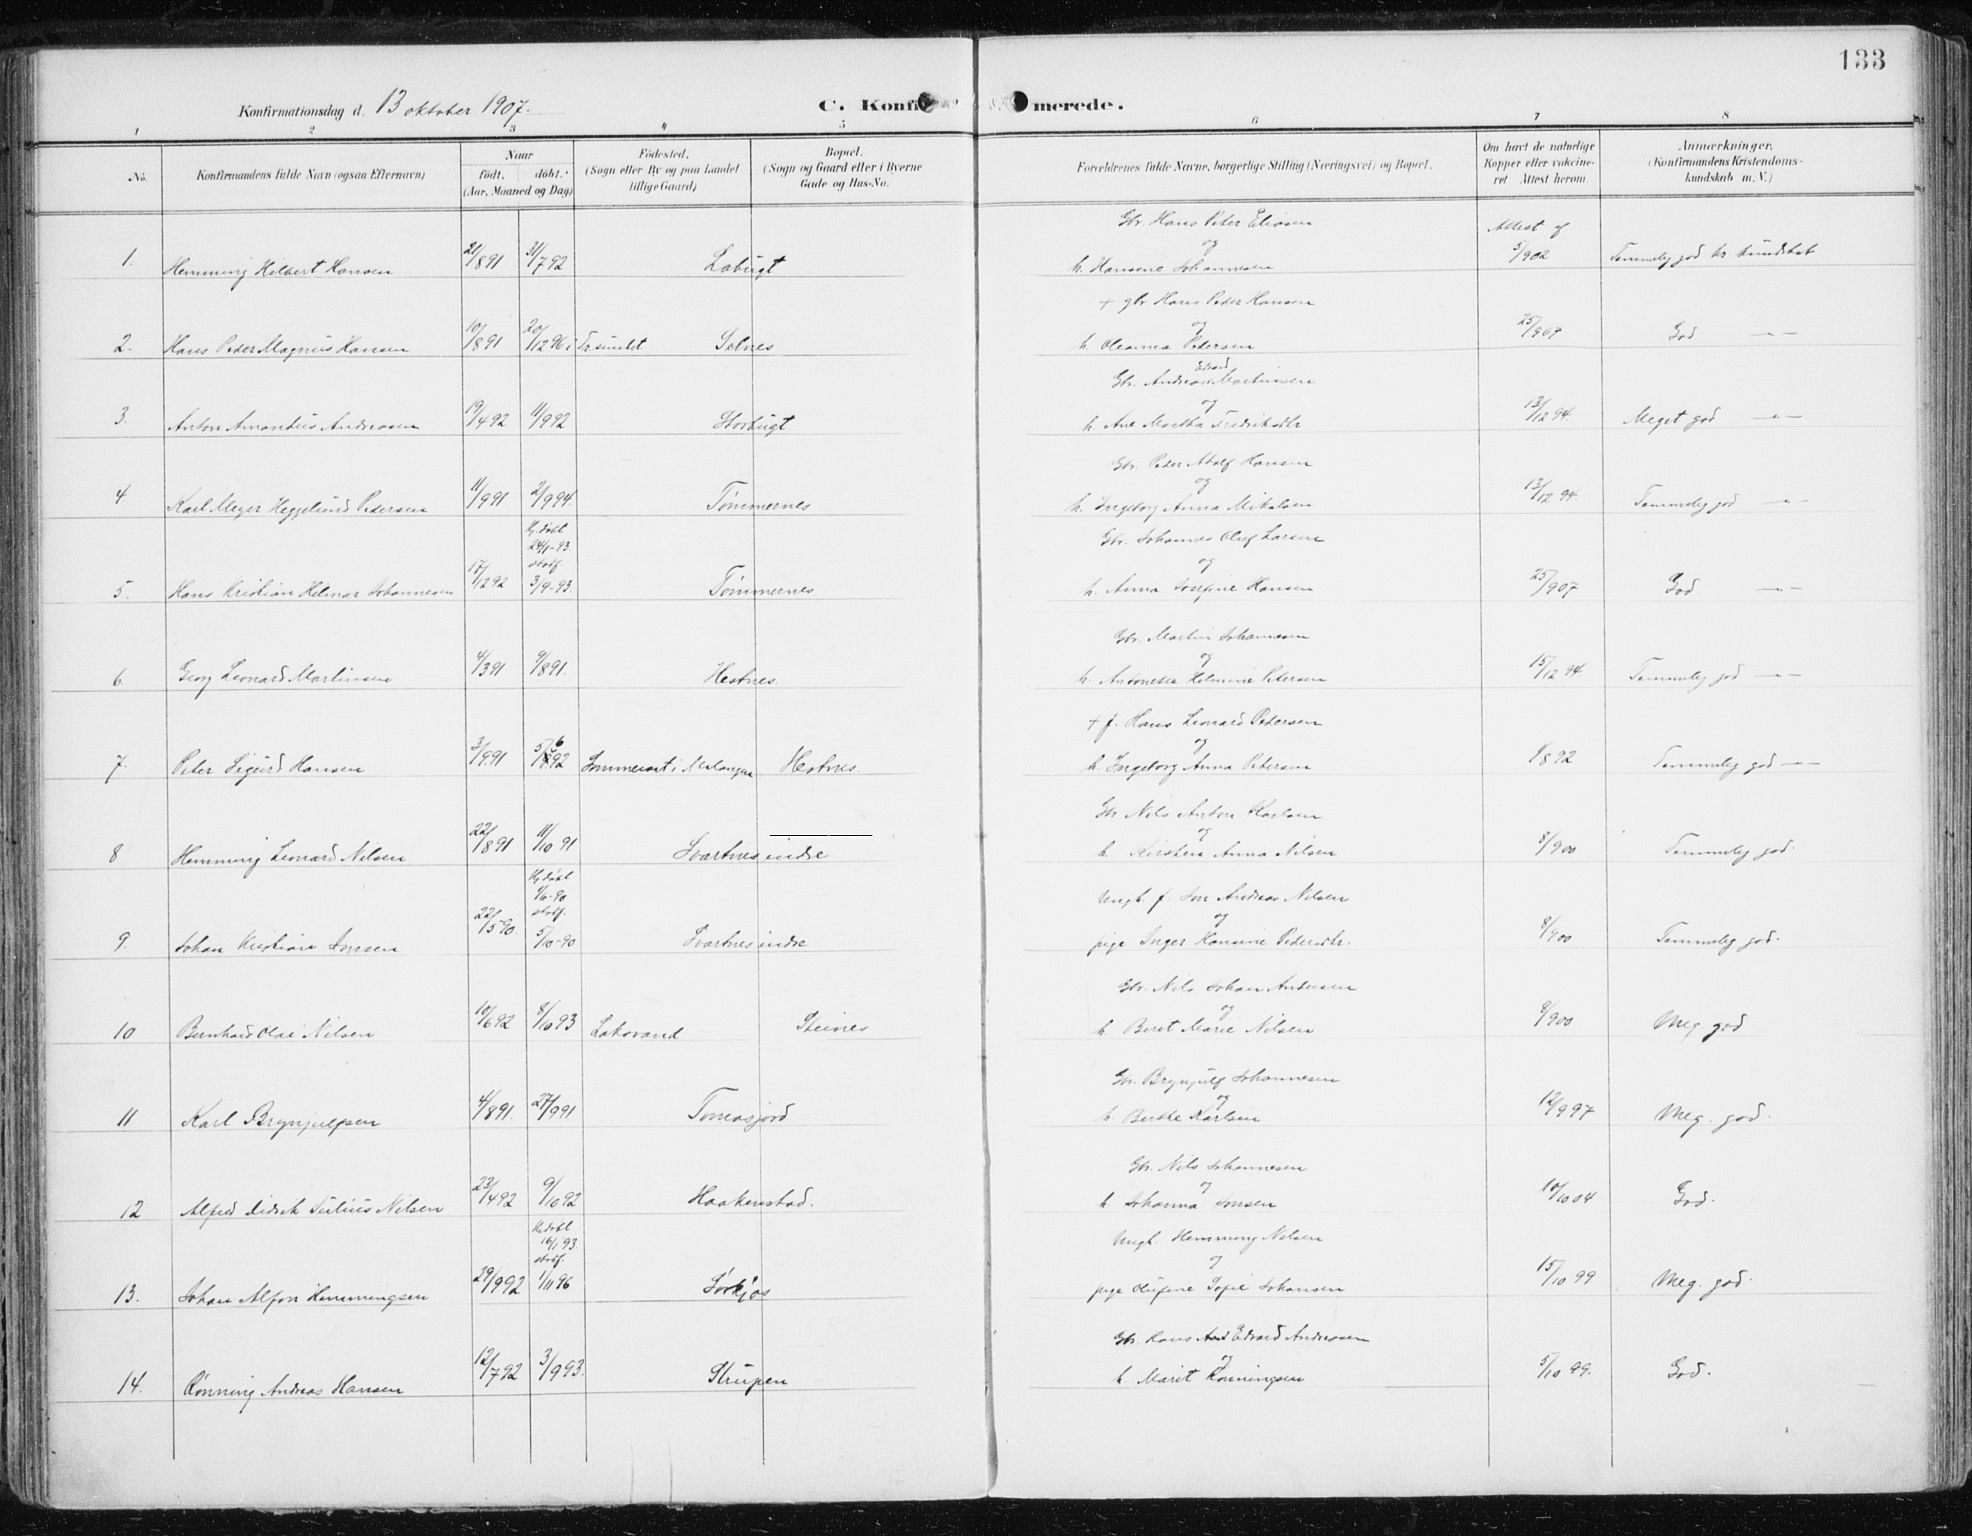 133
Konfirmationsdag d. 13 oktober 1907.
C. Konfir merede.
1 2 3 4 5 6 7 8
No.
Konfirmandens fulde Navn (ogsaa Efternavn)
Naar
födt. döbt.
(Aar, Maaned og Dag)
Födested.
(Sogn eller By og paa Landet
tillige Gaard)
Bopæl.
(Sogn og Gaard eller i Byerne
Gade og Hus-No.
Forældrenes fulde Navne, borgerlige Stilling (Næringsvei) og Bopæl.
Om havt de naturlige
Kopper eller vakcine-
ret Attest herom.
Anmærkninger.
(Konfirmandens Kristendoms-
kundskab m. V.)
Gbr. Hans Peter Eliasen
og
Attest af
1. Hemming Hilbert Hansen 21/8 91 31/7 92 Labugt h. Hansine Johannesen 5/902 Temmelig god kr. kundskab
+ gbr Hans Peder Hansen
og
2. Hans Peder Magnus Hansen 10/8 91 20/12 96 i Tr.sundet Solnes h. Oleanna Pedersen 25/907 God —"—
Edvard
Gbr. Andreas Martinsen
og
3. Anton Amandus Andreasen 19/4 92 11/9 92 Storbugt h. Ane Martha Fredriksdtr 13/12 94. Meget god —"—
Gbr. Peder Adolf Hansen
og
4. Karl Meyer Heggelund Pedersen 11/9 91 2/9 94. Tømmernes h. Ingeborg Anna Mikalsen 13/12 94 Temmelig god —"—
Gbr. Johannes Oluf Larsen
og
Hj. døbt
24/1-93
stadf.
5. Hans Kristian Hilmar Johannesen 17/12 92 3/9-93. Tømmernes h. Anna Josefine Hansen 25/907 God —"—
Gbr. Martin Johannesen
og
6. Georg Leonard Martinsen 4/3 91 9/8 91. Hestnes. h. Antonette Helmine Petersen 15/12 94 Temmelig god —"—
+ f. Hans Leonard Pedersen
og
7. Peter Sigurd Hansen 3/9 91 5/6 92 i Malangen Hestnes. h. Ingeborg Anna Petersen 1892 Temmelig god —"—
Gbr Nils Anton Karlsen
og
8 Hemming Leonard Nilsen 22/8 91 11/10 91 Svartnes indre h. Kirsten Anna Nilsen 8/900 Temmelig god.
Ungk. f. Jon Andreas Nilsen
og
Hj. døbt
1/6-90
stadf.
9. Johan Kristian Jonsen 22/5 90. 5/10-90 Svartnes indre pige Inger Hansine Pedersdtr. 8/900 Temmelig god.
Gbr. Nils Johan Andersen
og
10 Bernhard Olai Nilsen 10/6 92 8/10 93 Laksvand Steines h. Beret Marie Nilsen 8/900 Meg. god
Gbr. Brynjulf Johannesen
og
11 Karl Brynjulfsen 4/8 91. 27/9 91 Tomasjord h. Berthe Karlsen 12/9 97 Meg. god.
Gbr. Nils Johannesen
og
12 Alfred Didrik Julius Nilsen 23/4 92 9/10 92 Haakenstad. h. Johanna Jonsen 10/10 04 God.
Ungk. Hemming Nilsen
og
Hj. døbt
16/1 93.
stadf.
13. Johan Alfon Hemmingsen 29/9 92 1/11 96 Sørkjos pige Olufine Sofie Johansen 15/10 99 Meg. god.
Gbr. Hans Edvard Andreasen
og
14. Rønning Andreas Hansen 12/7 92 3/9 93. Strupen h. Marit Rønningsen 5/10 99. God.